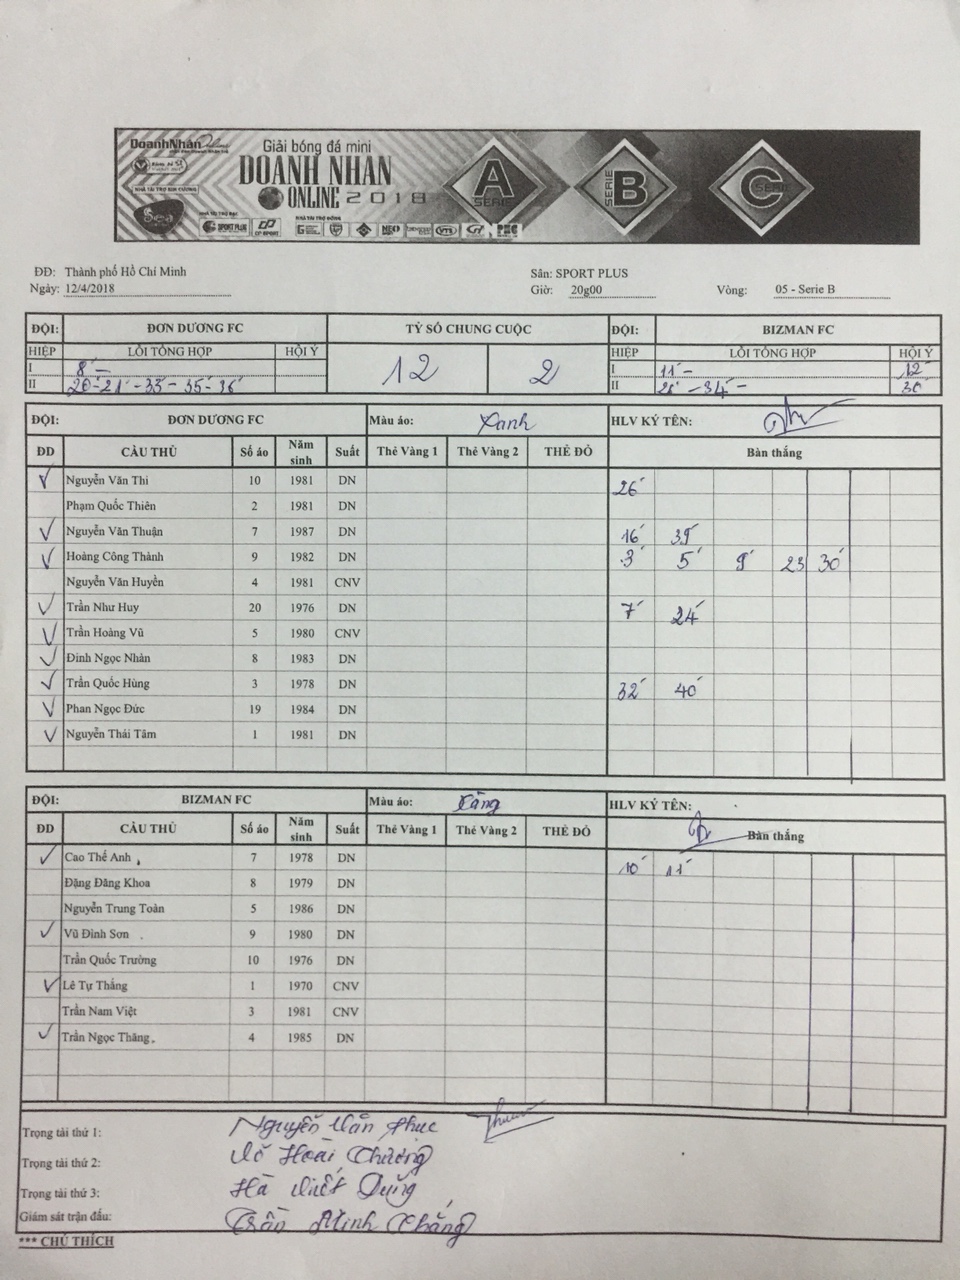 DoanhNhân Online
Giải bóng đá mini
DOANH NHÂN
ONLINE 2018
NHÀ TÀI TRỢ KIM CƯƠNG
Sea
NHÀ TÀI TRỢ BẠC
NHÀ TÀI TRỢ ĐỒNG
SPORT PLUS
CP SPORT
VTS
A SERIE
SERIE B
C SERIE
ĐĐ: Thành phố Hồ Chí Minh Sân: SPORT PLUS
Ngày: 12/4/2018 Giờ: 20g00 Vòng: 05 - Serie B
ĐỘI: ĐƠN DƯƠNG FC TỶ SỐ CHUNG CUỘC ĐỘI: BIZMAN FC
HIỆP LỖI TỔNG HỢP HỘI Ý 12 2 HIỆP LỖI TỔNG HỢP HỘI Ý
I 8' - I 11' - 12'
II 20'-21'-33'-35'-36' II 21' -34'- 30'
ĐỘI: ĐƠN DƯƠNG FC Màu áo: Xanh HLV KÝ TÊN:
ĐD CẦU THỦ Số áo Năm sinh Suất Thẻ Vàng 1 Thẻ Vàng 2 THẺ ĐỎ Bàn thắng
Nguyễn Văn Thi 10 1981 DN 26'
Phạm Quốc Thiên 2 1981 DN
Nguyễn Văn Thuận 7 1987 DN 16' 39'
Hoàng Công Thành 9 1982 DN 3' 5' 9' 23 30'
Nguyễn Văn Huyền 4 1981 CNV
Trần Như Huy 20 1976 DN 7' 24'
Trần Hoàng Vũ 5 1980 CNV
Đinh Ngọc Nhàn 8 1983 DN
Trần Quốc Hùng 3 1978 DN 32' 40'
Phan Ngọc Đức 19 1984 DN
Nguyễn Thái Tâm 1 1981 DN
ĐỘI: BIZMAN FC Màu áo: HLV KÝ TÊN:
ĐD CẦU THỦ Số áo Năm sinh Suất Thẻ Vàng 1 Thẻ Vàng 2 THẺ ĐỎ Bàn thắng
Cao Thế Anh 7 1978 DN 10' 11'
Đặng Đăng Khoa 8 1979 DN
Nguyễn Trung Toàn 5 1986 DN
Vũ Đình Sơn 9 1980 DN
Trần Quốc Trường 10 1976 DN
Lê Tự Thắng 1 1970 CNV
Trần Nam Việt 3 1981 CNV
Trần Ngọc Thăng 4 1985 DN
Trọng tài thứ 1: Nguyễn Văn Phuc
Trọng tài thứ 2: Hoài Chương
Trọng tài thứ 3: Hà Việt Dũng
Giám sát trận đấu: Trần Minh Thắng
*** CHÚ THÍCH